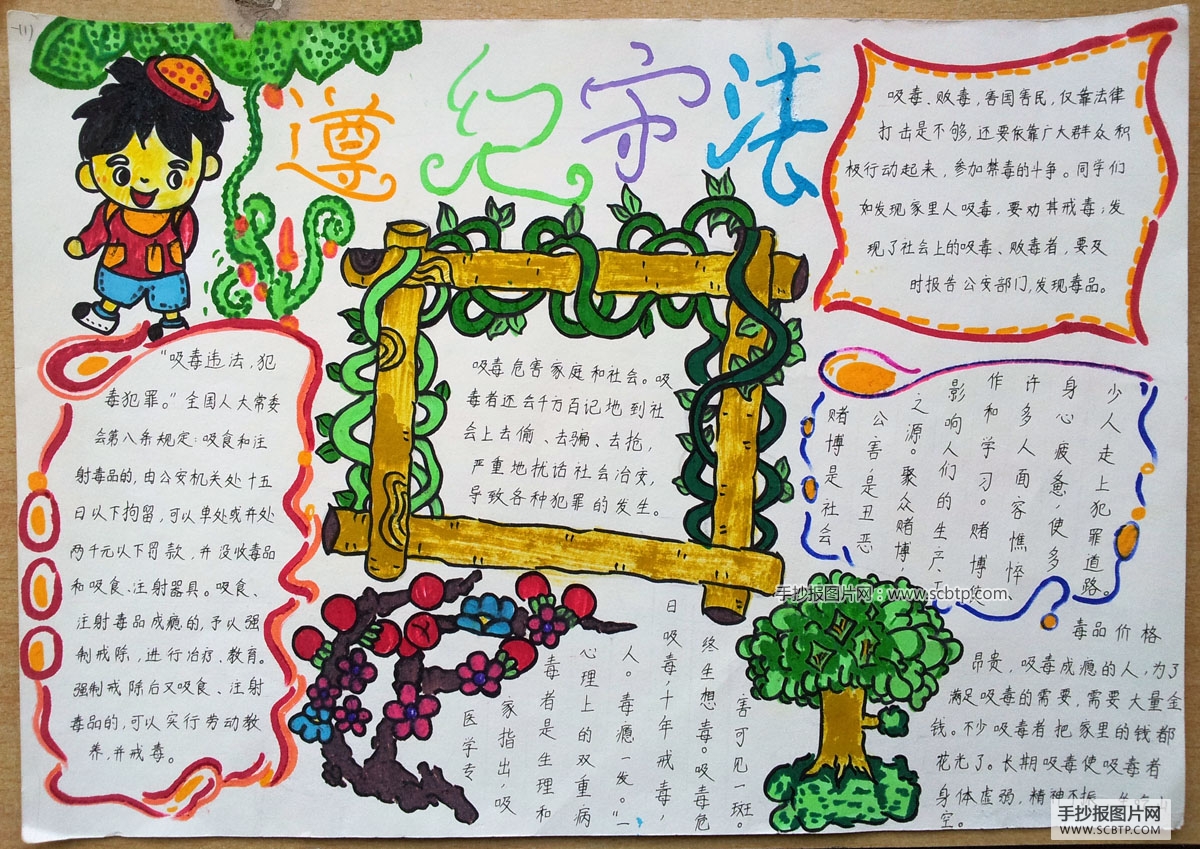 一(1)
遵纪守法
吸毒、贩毒,害国害民,仅靠法律
打击是不够,还要依靠广大群众积
极行动起来,参加禁毒的斗争。同学们
如发现家里人吸毒,要劝其戒毒;发
现了社会上的吸毒、贩毒者,要及
时报告公安部门,发现毒品。
“吸毒违法,犯
毒犯罪。”全国人大常委
会第八条规定:吸食和注
射毒品的,由公安机关处十五
日以下拘留,可以单处或并处
两千元以下罚款,并没收毒品
和吸食、注射器具。吸食、
注射毒品成瘾的,予以强
制戒除,进行治疗、教育。
强制戒除后又吸食、注射
毒品的,可以实行劳动教
养,并戒毒。
吸毒危害家庭和社会。吸
毒者还会千方百记地到社
会上去偷、去骗、去抢,
严重地扰诂社会治安,
导致各种犯罪的发生。
赌博是社会
公害,是丑恶
之源。聚众赌博,
影响人们的生产、
作和学习。赌博
许多人面容憔悴
身心疲惫,使多
少人走上犯罪道路。
医学专
家指出,吸
毒者是生理和
心理上的双重病
人。毒瘾一发。“一
日吸毒,十年戒毒,
终生想毒。吸毒危
害可见一斑。
毒品价格
昂贵,吸毒成瘾的人,为了
满足吸毒的需要,需要大量金
钱。不少吸毒者把家里的钱都
花光了。长期吸毒使吸毒者
身体虚弱,精神不振
空。
手抄报图片网:www.scbtp.com
手抄报图片网
WWW.SCBTP.COM